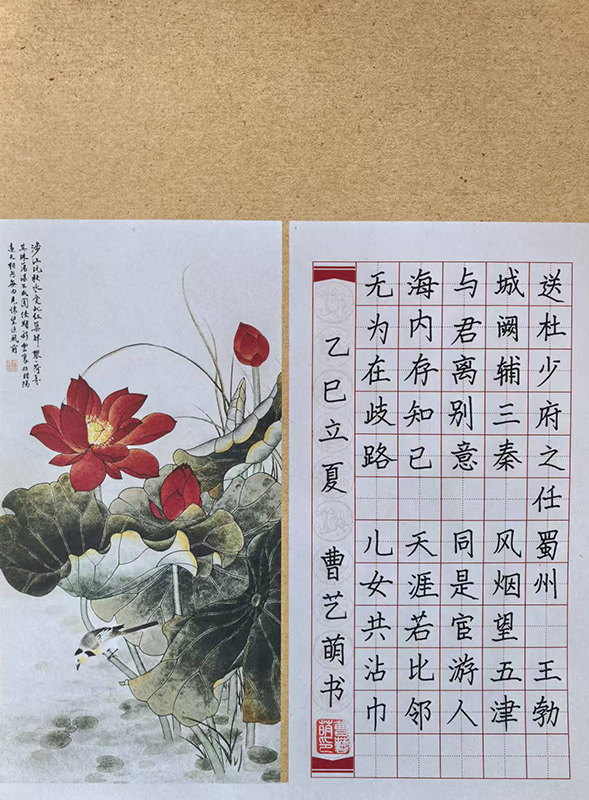 送杜少府之任蜀州 王勃
城阙辅三秦 风烟望五津
与君离别意 同是宦游人
海内存知己 天涯若比邻
无为在歧路 儿女共沾巾
乙巳立夏 曹艺萌书